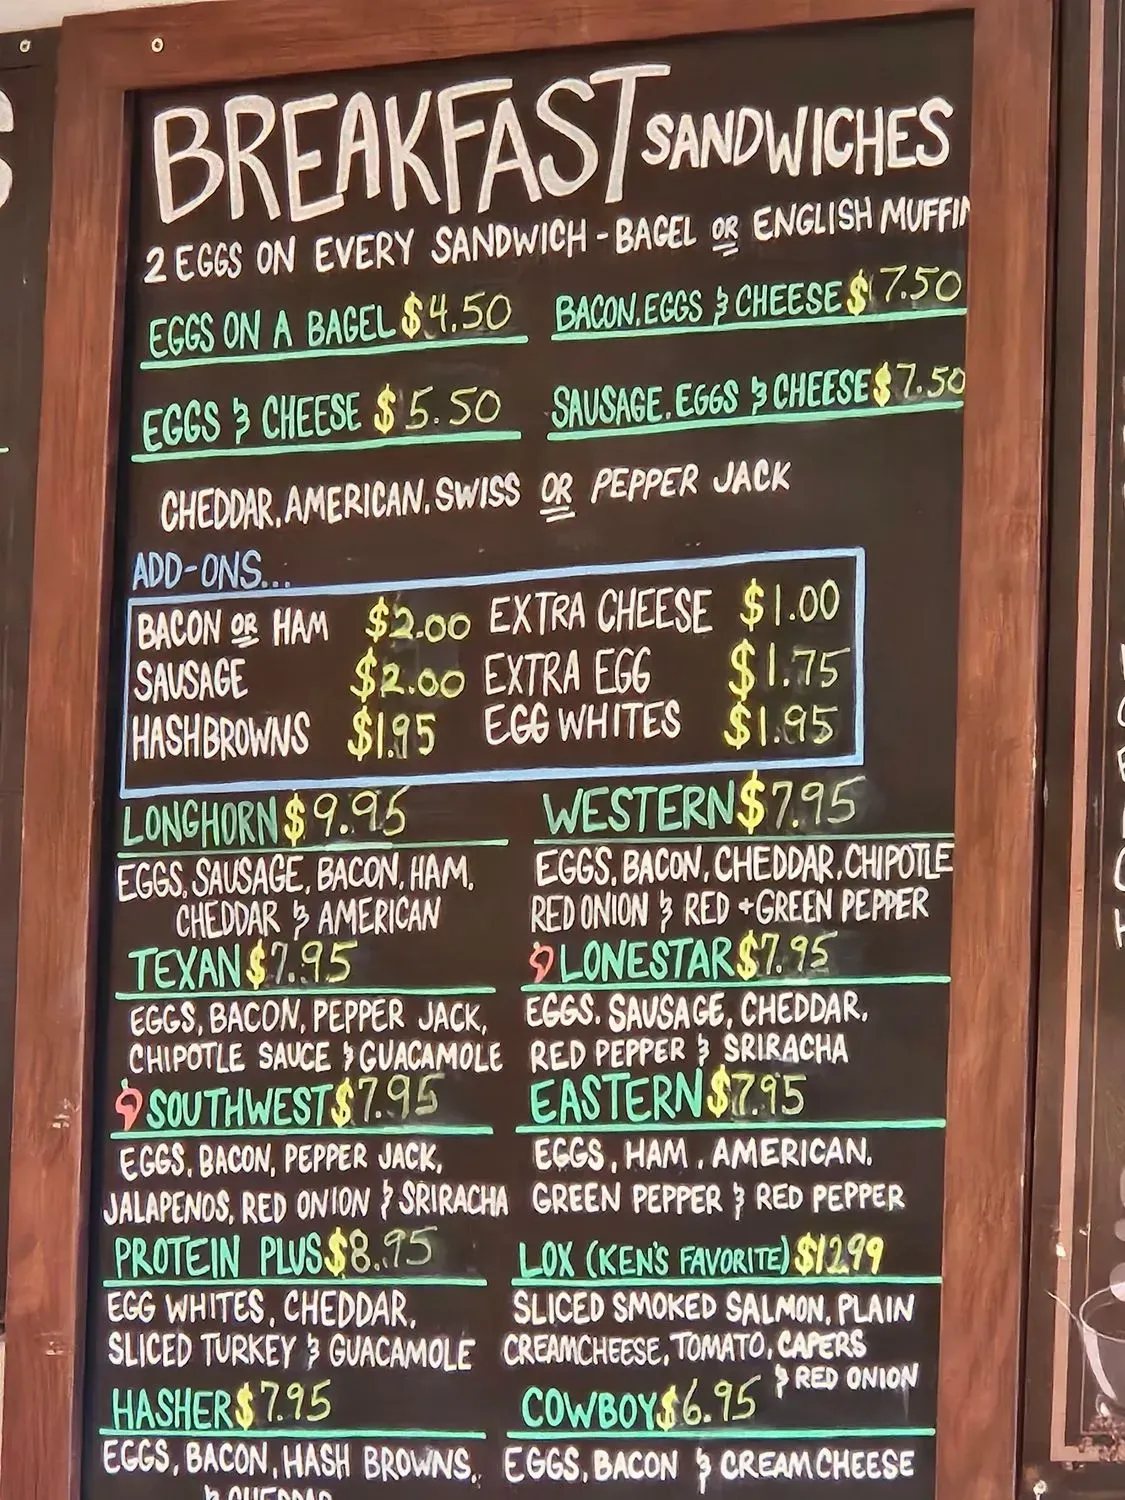 BREAKFAST SANDWICHES
2 EGGS ON EVERY SANDWICH - BAGEL OR ENGLISH MUFFIN
EGGS ON A BAGEL $4.50
BACON, EGGS & CHEESE $7.50
EGGS & CHEESE $5.50
SAUSAGE, EGGS & CHEESE $7.50
CHEDDAR, AMERICAN, SWISS OR PEPPER JACK
ADD-ONS...
BACON OR HAM $2.00 EXTRA CHEESE $1.00
SAUSAGE $2.00 EXTRA EGG $1.75
HASHBROWNS $1.95 EGG WHITES $1.95
LONGHORN $9.95
EGGS, SAUSAGE, BACON, HAM,
CHEDDAR & AMERICAN
WESTERN $7.95
EGGS, BACON, CHEDDAR, CHIPOTLE
RED ONION & RED + GREEN PEPPER
TEXAN $7.95
EGGS, BACON, PEPPER JACK,
CHIPOTLE SAUCE & GUACAMOLE
LONESTAR $7.95
EGGS, SAUSAGE, CHEDDAR,
RED PEPPER & SRIRACHA
SOUTHWEST $7.95
EGGS, BACON, PEPPER JACK,
JALAPENOS, RED ONION & SRIRACHA
EASTERN $7.95
EGGS, HAM, AMERICAN,
GREEN PEPPER & RED PEPPER
PROTEIN PLUS $8.95
EGG WHITES, CHEDDAR,
SLICED TURKEY & GUACAMOLE
LOX (KEN'S FAVORITE) $12.99
SLICED SMOKED SALMON, PLAIN
CREAMCHEESE, TOMATO, CAPERS
& RED ONION
HASHER $7.95
EGGS, BACON, HASH BROWNS,
& CHEDDAR
COWBOY $6.95
EGGS, BACON & CREAMCHEESE